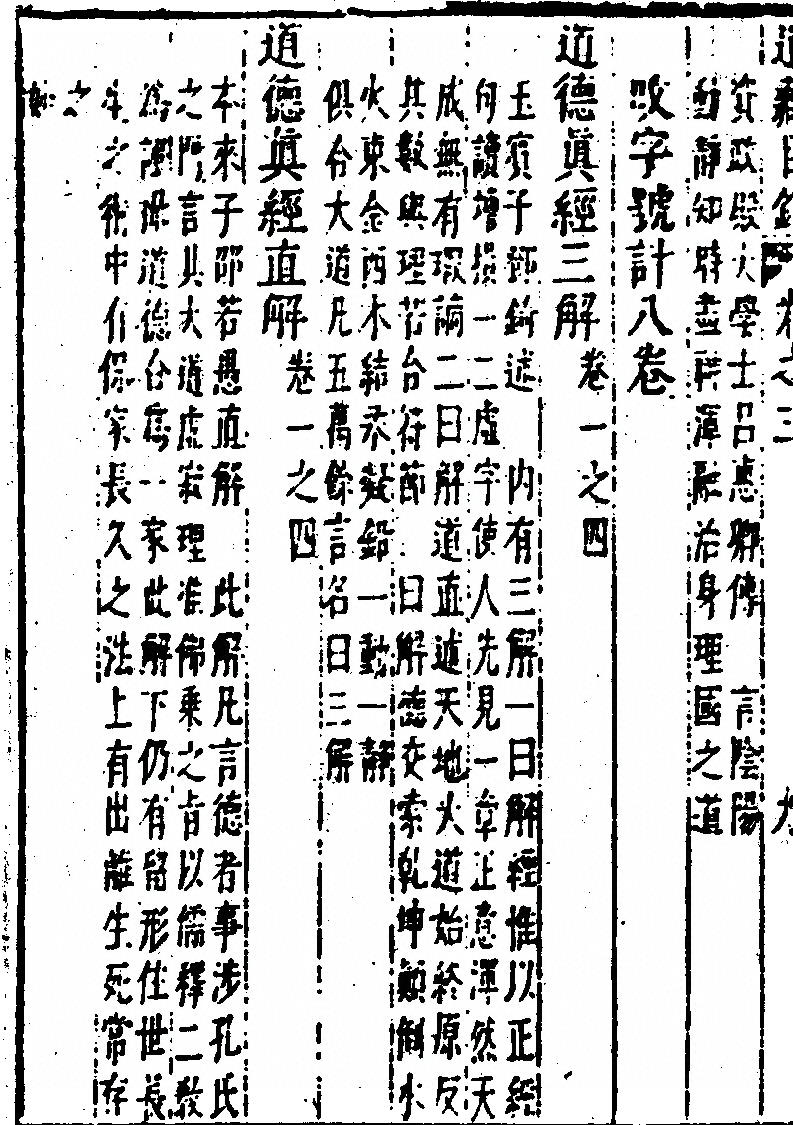 道藏目錄 卷之三
資政殿大學士呂惠卿傳　言陰陽
動靜知時盡群運融治身理國之道
改字號計八卷
道德真經三解　卷一之四
玉賓子鄧錡述　內有三解一曰解經惟以正經
句讀增損一二虛字使人先見一章正意渾然天
成無有瑕謫二曰解道直述天地火道始終原反
其數與理若合符節　曰解德交索乾坤顛倒水
火東金西木結汞凝鉛一動一靜
俱合大道凡五萬餘言名曰三解
道德眞經直解　卷一之四
本來子邵若愚直解　此解凡言德者事涉孔氏
之門言其大道虛寂理准佛乘之旨以儒釋二教
爲證毋道德合爲一家此解下仍有留形住世長
生之術中有保家長久之法上有出離生死常存
之
妙